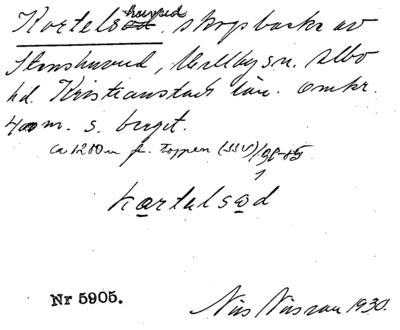 Kortelshuvud, skogbacke av
Stenshuvud, Mellby sn. Albo
hd. Kristianstads län. omkr.
400 m. s. berget.
ca 1200 m fr. toppen (SSV)
kortalsod
Nr 5905.
Nils Nilsson 1930.